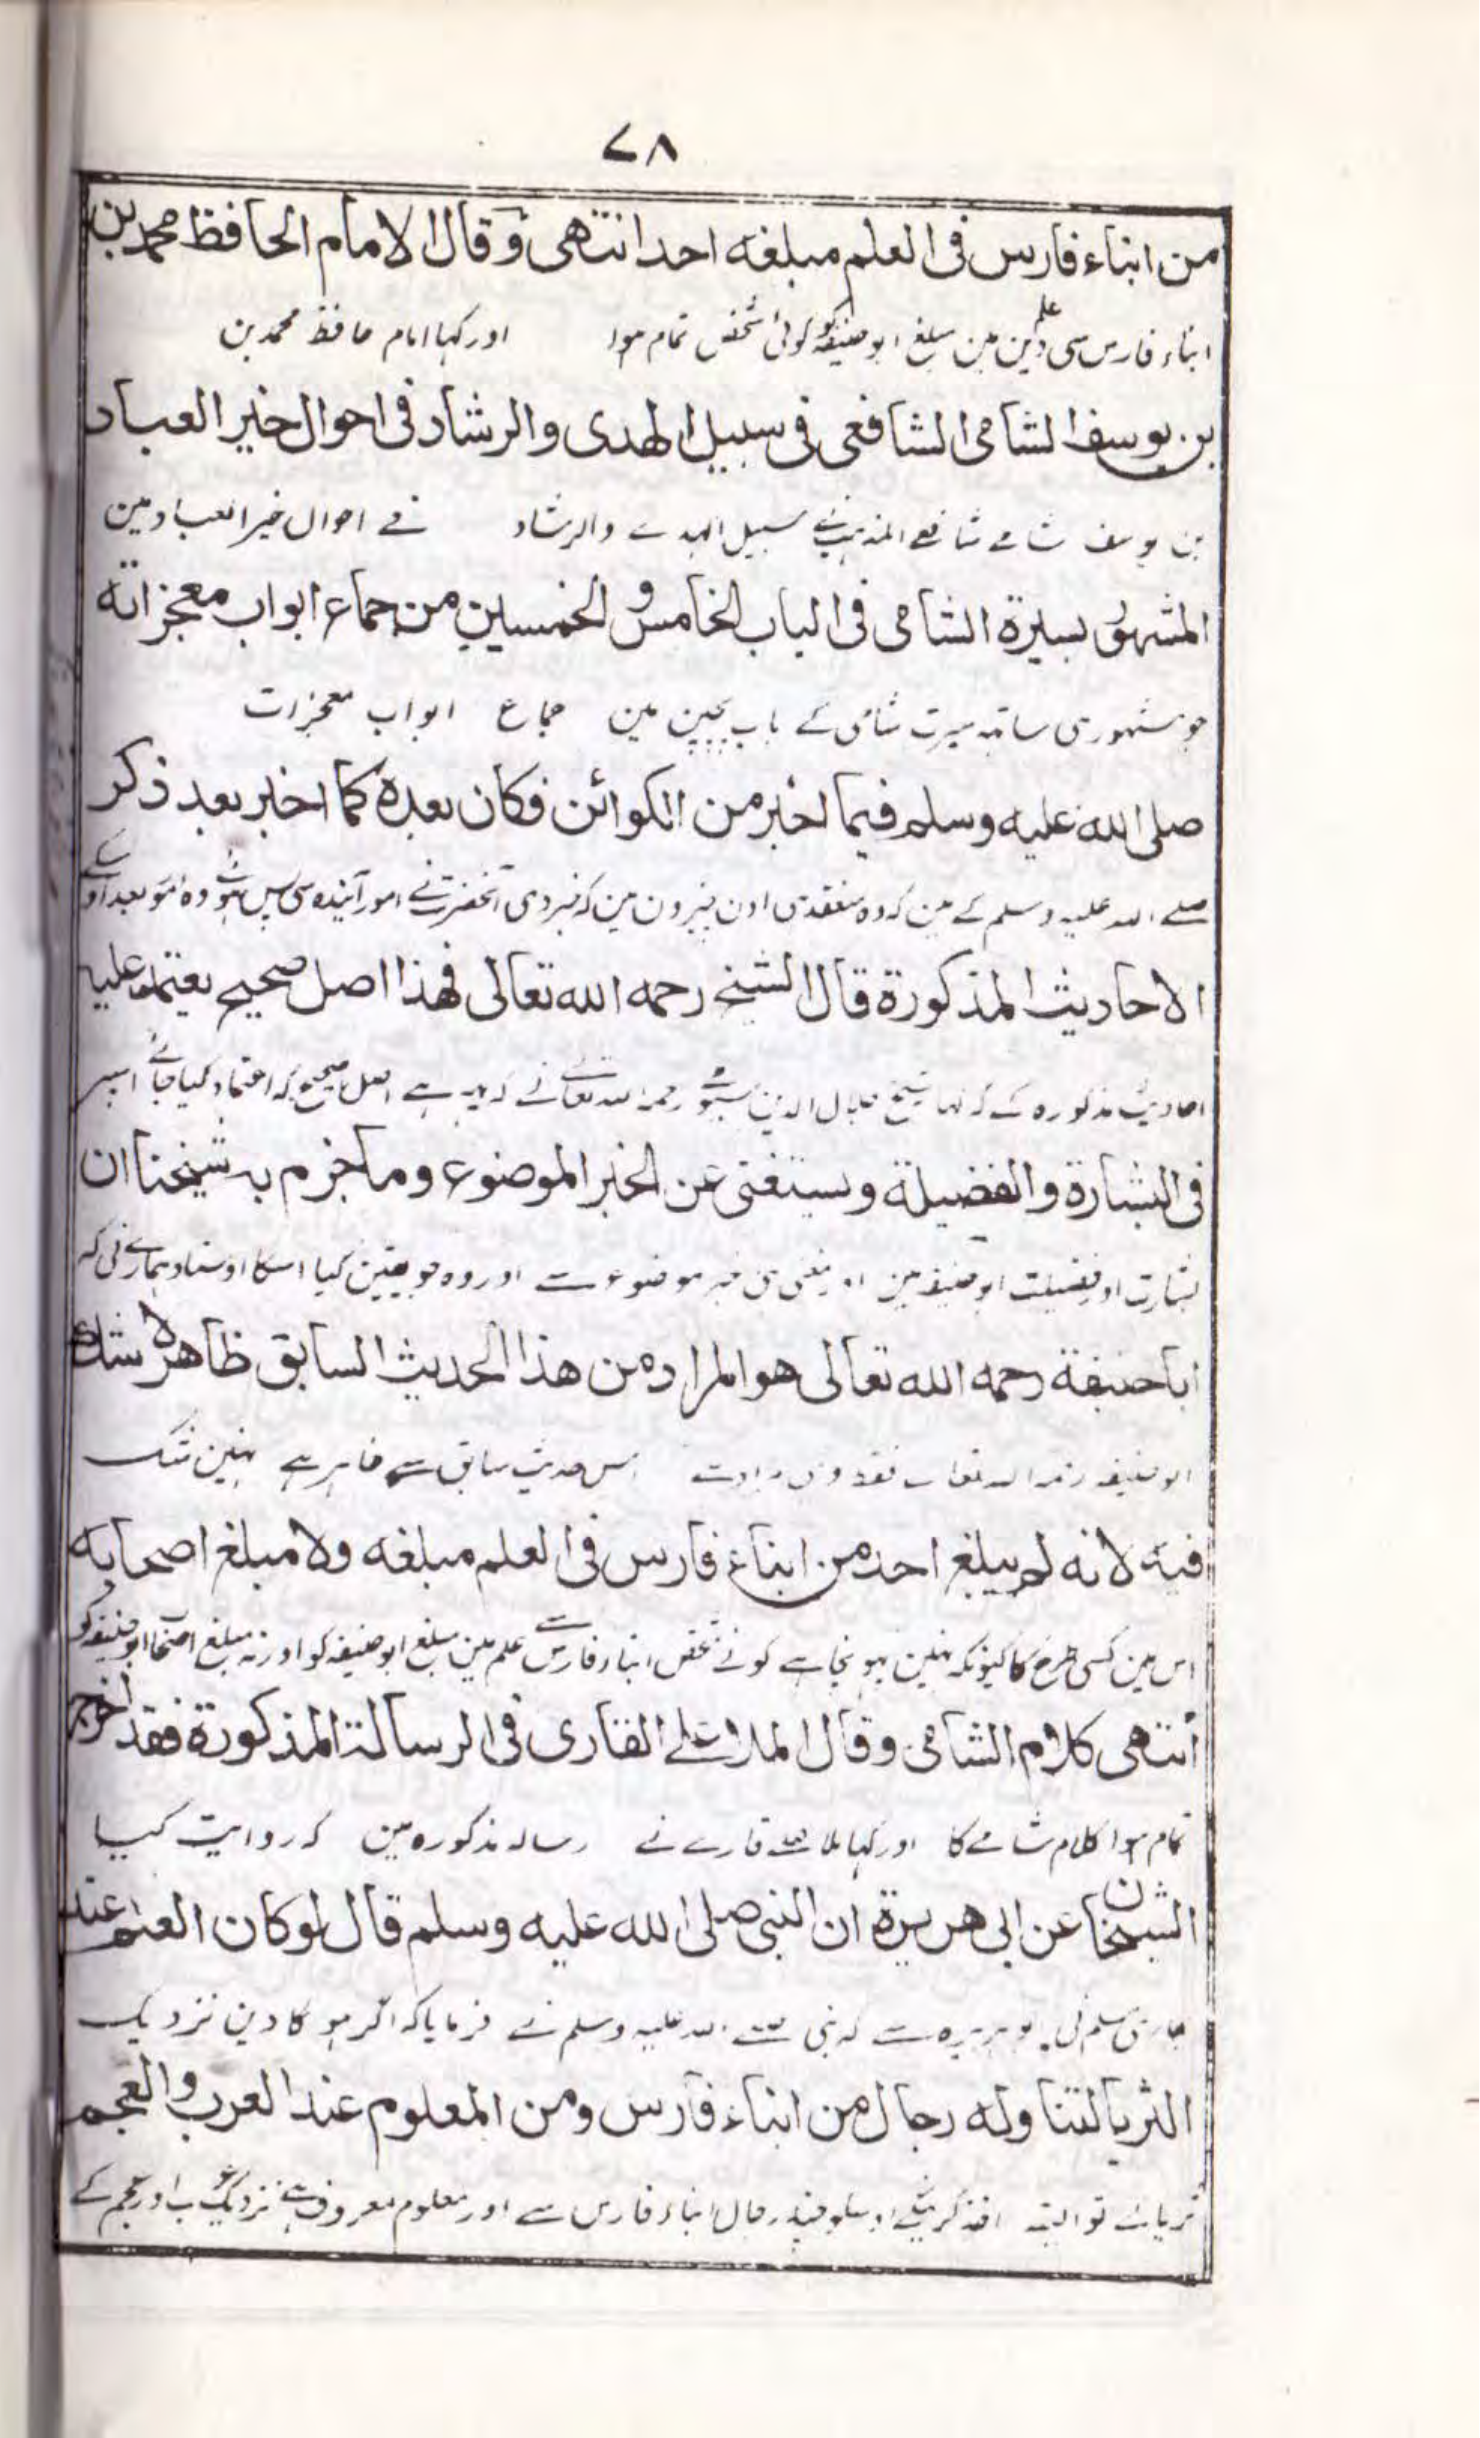 ۷۸
من ابناء فارس فى العلم مبلغه احد انتهى وقال الامام الحافظ محمد بن
ابناء فارس سى علم دين مين مبلغ ابو حنيفه كو كوئى شخص تمام هوا اور كہا امام حافظ محمد بن
بن يوسف الشامى الشافعى فى سبيل الهدى والرشاد فى احوال خير العباد
بن يوسف شامے شافعے المذہب نے سبيل الہدے والرشاد فے احوال خير العباد مين
المشهور بسيرة الشامى فى الباب الخامس و الخمسين من جماع ابواب معجزاته
جو مشہور ہى ساتہہ سيرت شامى كے باب پچپن مين جماع ابواب معجزات
صلى الله عليه وسلم فيما اخبر من الكوائن فكان بعده كما اخبر بعد ذكر
صلے الله عليه وسلم كے مين كہ وہ منعقد ہى اون خبرون مين كہ خبر دى آنحضرت نے امور آينده سى پس ہوئے وہ امور بعد
الاحاديث المذكورة قال الشيخ رحمه الله تعالى فهذا اصل صحيح يعتمد عليه
احاديث مذكوره كے كہ كہا شيخ جلال الدين سيوطى رحمه الله تعالے نے كہ يہ ہے اصل صحيح كہ اعتماد كيا جائے اسپر
فى البشارة والفضيلة ويستغنى عن الخبر الموضوع وما جزم به شيخنا ان
بشارت اور فضيلت ابو حنيفه مين اور خبر موضوع سے اور وہ جو يقين كيا اسكا اوستاد ہمارے نى كہ
ابا حنيفة رحمه الله تعالى هو المراد من هذا الحديث السابق ظاهر لا شك
ابو حنيفه رحمه الله اس حديث سابق سے ظاہر ہے نہين شك
فيه لانه لم يبلغ احد من ابناء فارس فى العلم مبلغه ولا مبلغ اصحابه
اس مين كسى طرح كا كيونكہ نہين پہونچا ہے كوئے شخص ابناء فارس سے علم مين مبلغ ابو حنيفه كو اور نہ مبلغ اصحاب ابو حنيفه كو
انتهى كلام الشامى وقال الملا على القارى فى الرسالة المذكورة فقد اخرج
تمام ہوا كلام شامے كا اور كہا ملا علے قارے نے رساله مذكوره مين كہ روايت كيا
الشيخان عن ابى هريرة ان النبى صلى الله عليه وسلم قال لو كان العلم عند
بخارى مسلم نى ابو ہريره سے كہ نبى صلے الله عليه وسلم نے فرمايا كہ اگر ہوگا دين نزديك
الثريا لتناوله رجال من ابناء فارس ومن المعلوم عند العرب والعجم
ثريا كے تو البتہ اخذ كرينگے اوسكو چند رجال ابناء فارس سے اور معلوم معروف ہے نزديك عرب اور عجم كے